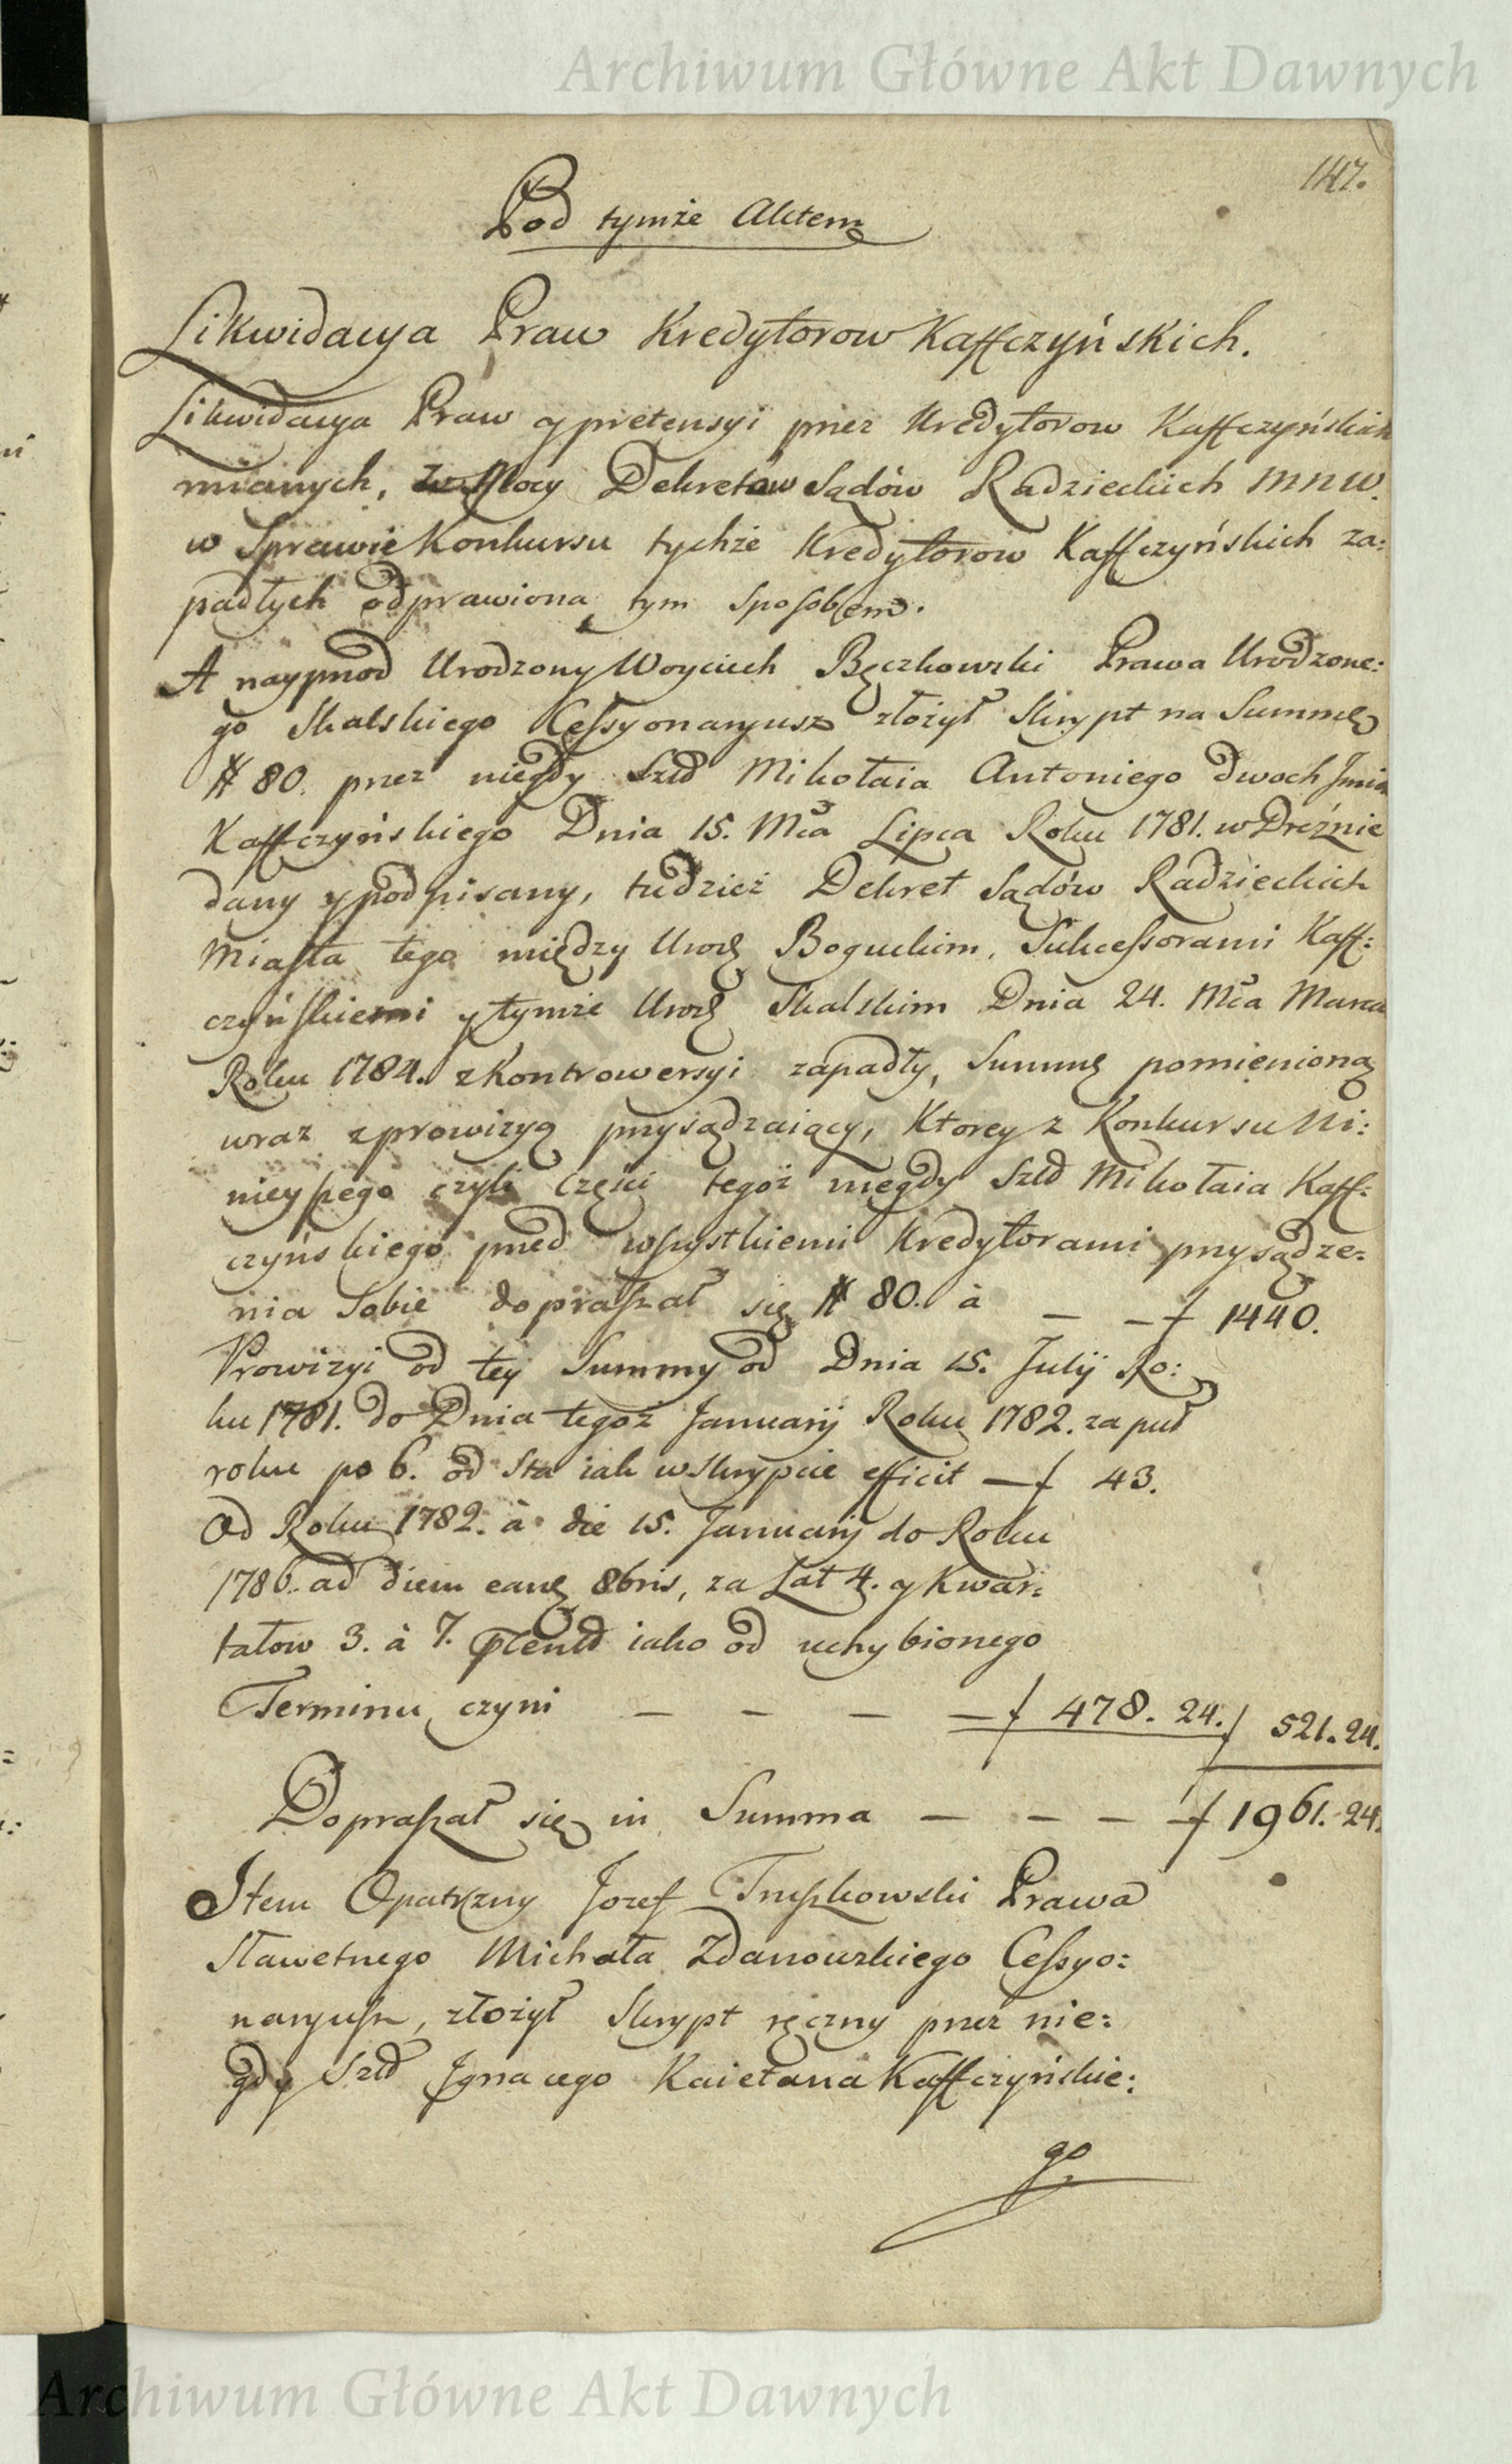 Archiwum Główne Akt Dawnych
147.
Pod tymże Aktem
Likwidacya Praw Kredytorow Kaffczyńskich.
Likwidacya Praw y pretensyi przez Kredytorow Kaffczyńskich
mianych, z Mocy Dekretów Sądów Radzieckich MNW.
w Sprawie Konkursu tychże Kredytorow Kaffczyńskich za:
padłych odprawiona tym sposobem.
A nayprzod Urodzony Woyciech Bęczkowski Prawa Urodzone:
go Skalskiego Cessyonaryusz złożył Skrypt na Summę
# 80. przez niegdy Szld Mikołaia Antoniego dwoch Jmion
Kaffczyńskiego Dnia 15. Mca Lipca Roku 1781. w Dreźnie
dany y podpisany, tudzież Dekret Sądów Radzieckich
Miasta tego między Urodz Boguckim, Sukcessorami Kaff:
czyńskiemi y tymże Urodz Skalskim Dnia 24. Mca Marca
Roku 1784. z Kontrowersyi zapadły, Summę pomienioną
wraz z prowizyą przysądzaiący, Ktorey z Konkursu Ni:
nieyszego czyli Części tegoż niegdy Szld Mikołaia Kaff:
czyńskiego przed wszystkiemi Kredytorami przysądze:
nia Sobie dopraszał się # 80. à — — f 1440.
Prowizyi od tey Summy od Dnia 15. Julij Ro:
ku 1781. do Dnia tegoż Januarij Roku 1782. za puł
roku po 6. od Sta iak w Skrypcie efficit — f 43.
Od Roku 1782. à die 15. Januarij do Roku
1786. ad diem eand 8bris, za Lat 4. y Kwar:
tałow 3. à 7. iako od uchybionego
Terminu czyni — — — — f 478. 24. f 521. 24.
Dopraszał się in Summa — — — f 1961. 24.
Item Opatrzny Jozef Truszkowski Prawa
Sławetnego Michała Zdanowskiego Cessyo:
naryusz, złożył Skrypt ręczny przez nie:
gdy Szld Jgnacego Kaietana Kaffczyńskie:
go
Archiwum Główne Akt Dawnych